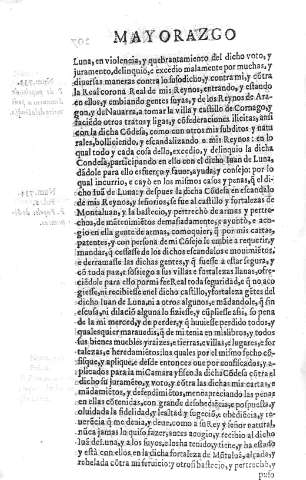 MAYORAZGO
Luna, en violencia, y quebrantamiento del dicho voto, y
juramento, delinquio, e excedio malamente por muchas, y
diuersas maneras contra lo susodicho, y contra mi, y cõtra
la Real corona Real de mis Reynos, entrando, y estando
en ellos, y embiando gentes suyas, y de los Reynos de Ara-
gon, y de Nauarra, a tomar la villa, y castillo de Cornago, y
faciẽdo otros tratos y ligas, y cõfederaciones ilicitas, ansi
con la dicha Cõdesa, como con otros mis subditos y natu
rales, bolliciendo, y escandalizando a mis Reynos: en lo
qual todo y cada cosa dello, excedio, y delinquio la dicha
Condesa, participando en ello con el dicho Iuan de Luna,
dãdole para ello esfuerço, fauor, ayuda, y consejo: por lo
qual incurrio, e cayò en los mismos casos y penas, q̃ el di-
cho Iuã de Luna: y despues la dicha Cõdesa en escandalo
de mis Reynos, y señorios, se fue al castillo y fortalezas de
Montaluan, y la bastecio, y pertrechò de armas y pertre-
chos, de mãtenimiẽtos demasiadamente, y ayũtò, e aco-
gio en ella gente de armas, comoquier, q̃ por mis cartas,
patentes, y con persona de mi Cõsejo le embie a requerir, y
mandar, q̃ cessasse de los dichos escandalos e mouimiẽtos,
e derramasse las dichas gentes, y q̃ fuesse a estar segura, y
cõ toda paz, e sossiego a sus villas e fortalezas llanas, ofre-
ciẽdole para ello por mi fee Real toda seguridad, q̃ no aco
giesse, ni recibiesse en el dicho castillo, y fortaleza gẽtes del
dicho Iuan de Luna, ni a otros algunos, e mãdadole, q̃ sin
escusa, ni dilaciõ alguna lo fiziesse, y cũpliesse ansi, so pena
de la mi merced, y de perder, y q̃ huuiesse perdido todos, y
qualesquier marauedis, q̃ de mi tenia en mis libros, y todos
sus bienes muebles y raizes, e tierras, e villas, e lugares, e for
talezas, e heredamiẽtos: los quales por el mismo fecho cõfis-
que, y aplique, e desde entonces oue por confiscados, y a-
plicados para la mi Camara y fisco. la dicha Cõdesa cõtra el
dicho su jurameto, y voto, y cõtra las dichas mis cartas, e
mãdamiẽtos, y defendimiẽtos, menospreciando las penas
en ellas cõtenidas, con grande desobediẽcia, e pospuesta, y
oluidada la fidelidad, y lealtad y sugeciõ, e obediẽcia, y re-
uerẽcia q̃ me denia, y deue, como a su Rey y señor natural,
nũca jamas lo quiso fazer, antes acogio, y recibio al dicho
Iuã de Luna, y a los suyos, e los ha tenido, y tiene, y ha estado
y està con ellos en la dicha fortaleza de Mõtaluã, alçada, y
rebelada cõtra mi seruicio; y otrosi bastecio, y pertrechò, y
puso